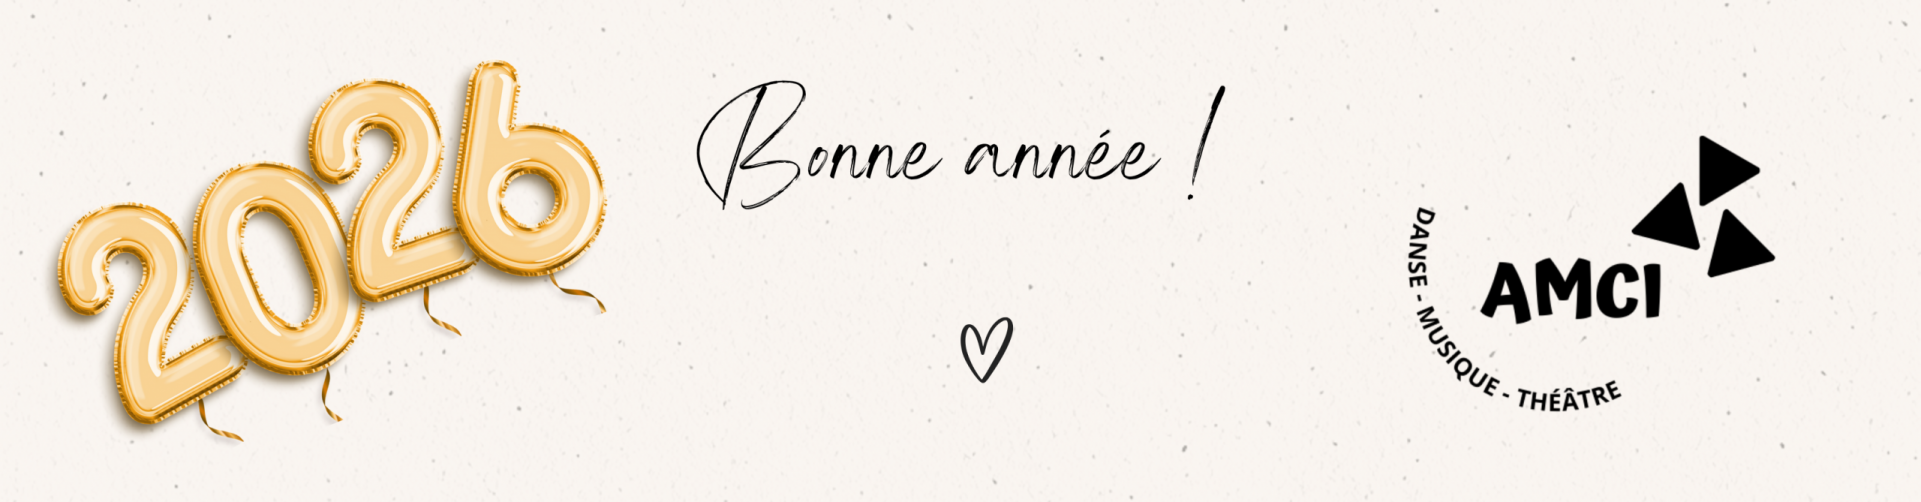 2026
Bonne année !
AMCI
DANSE - MUSIQUE - THÉÂTRE